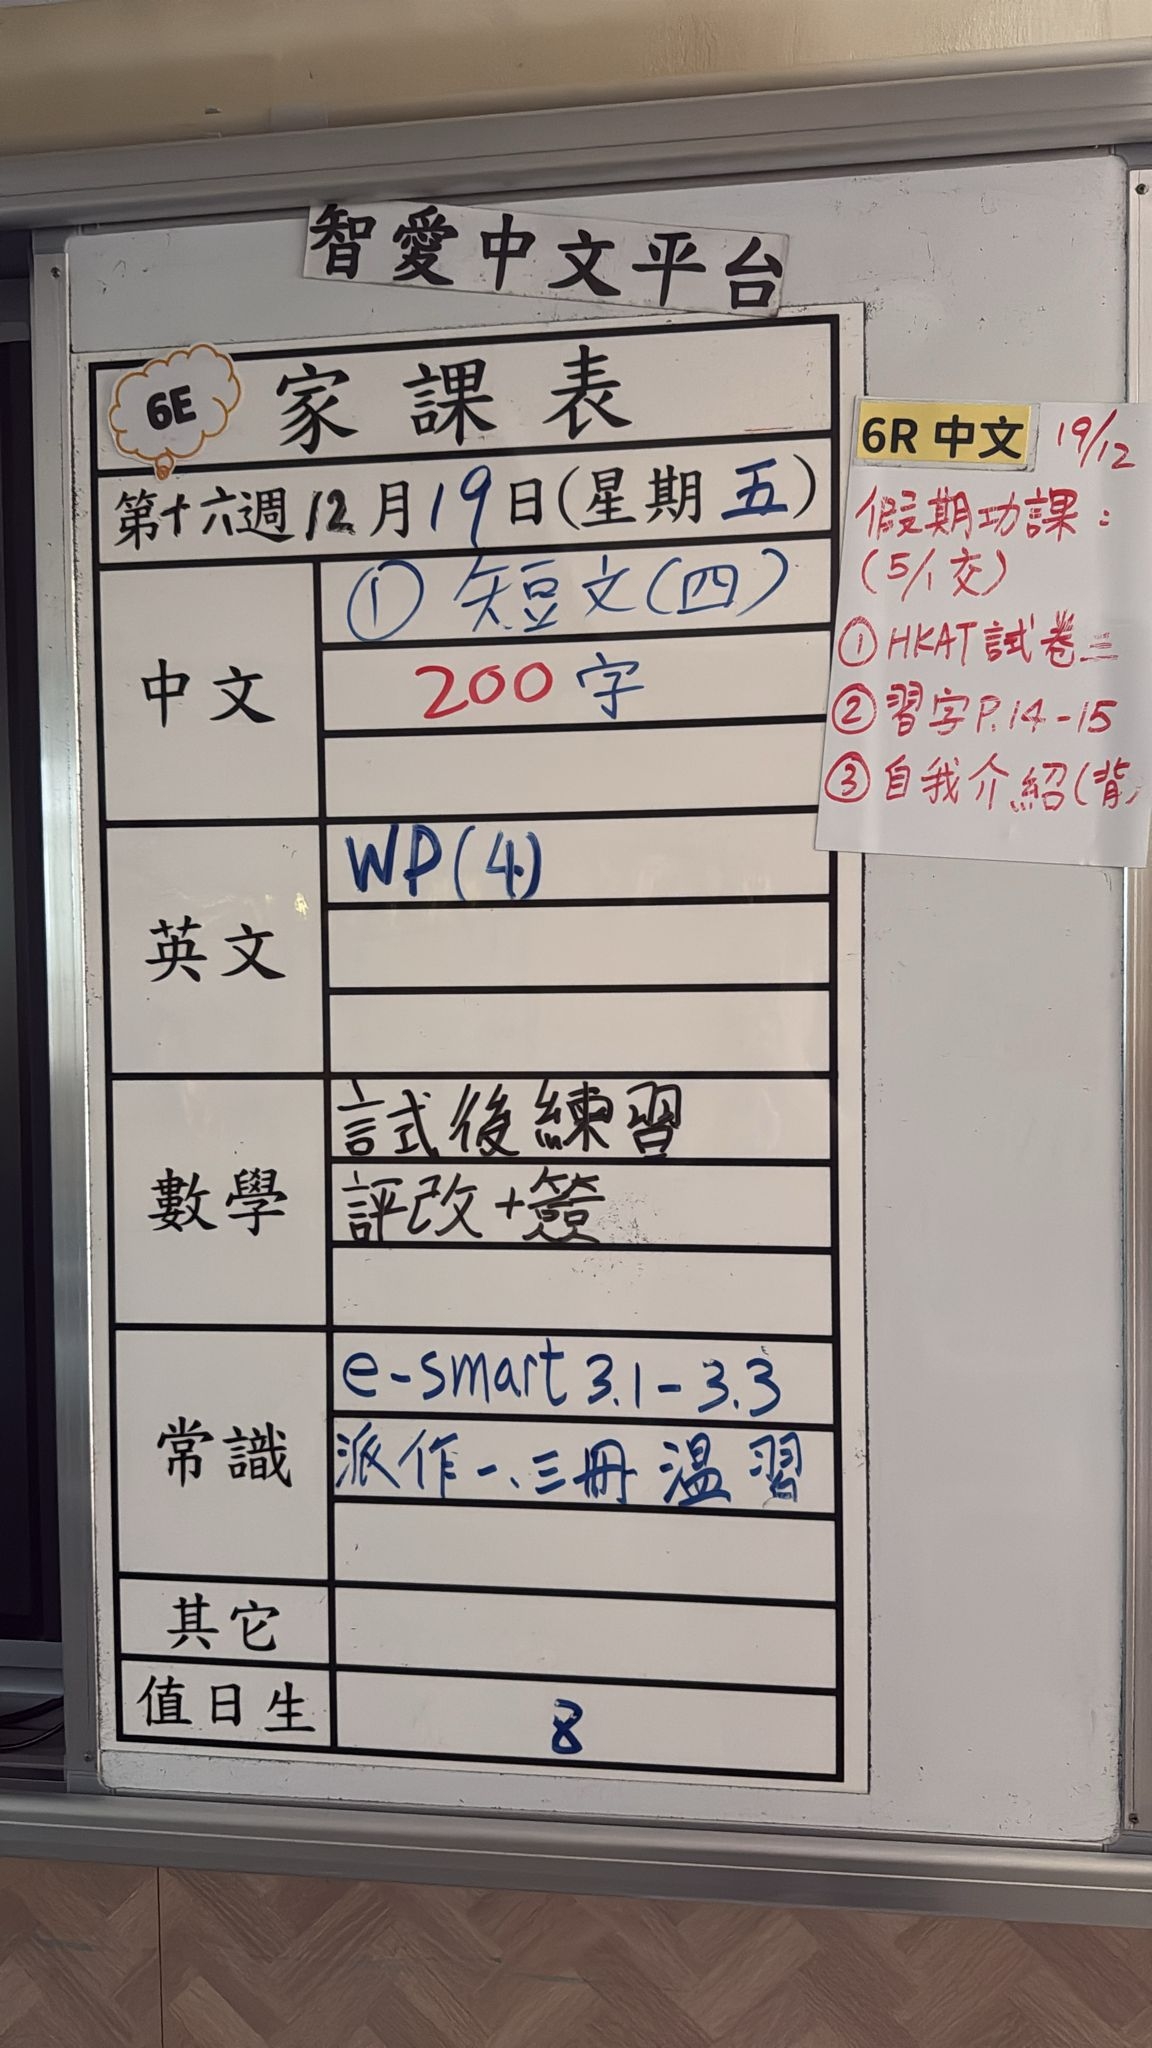 智愛中文平台
6E 家課表
第十六週12月19日(星期五)
中文
① 短文(四)
200字
英文
WP(4)
數學
試後練習
評改+簽
常識
e-smart 3.1-3.3
派作一、三冊 溫習
其它
值日生
8
6R 中文 19/12
假期功課:
(5/1交)
① HKAT試卷三
② 習字P.14-15
③ 自我介紹(背)